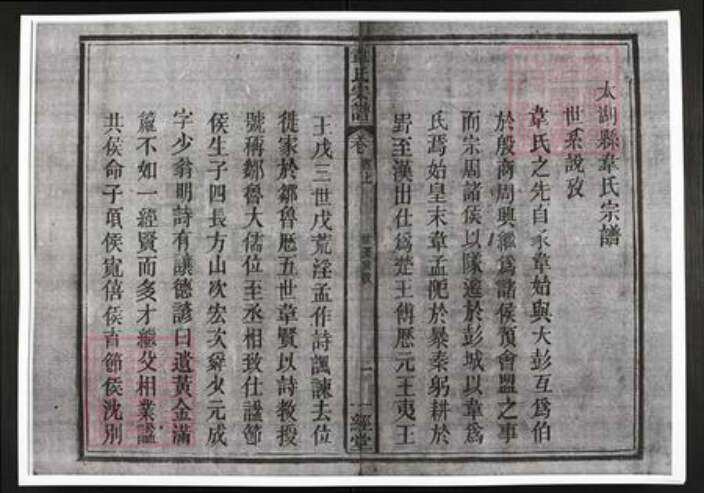 太湖縣韋氏宗譜
世系說攷
韋氏之先自豕韋始與大彭互爲伯
於殷商周興繼爲諸侯預會盟之事
而宗周諸侯以隊遷於彭城以韋爲
氏焉始皇末韋孟俛於暴秦躬耕於
野至漢出仕爲楚王傅歷元王夷王
韋氏宗譜
卷
首上
一
一經堂
王戊三世戊荒淫孟作詩諷諫去位
徙家於鄒魯歷五世韋賢以詩教授
號稱鄒魯大儒位至丞相致仕謚節
侯生子四長方山次宏次舜少元成
字少翁明詩有讓德諺曰遺黃金滿
籯不如一經賢而多才繼父相業謚
共侯命子頃侯寬僖侯育節侯沈別